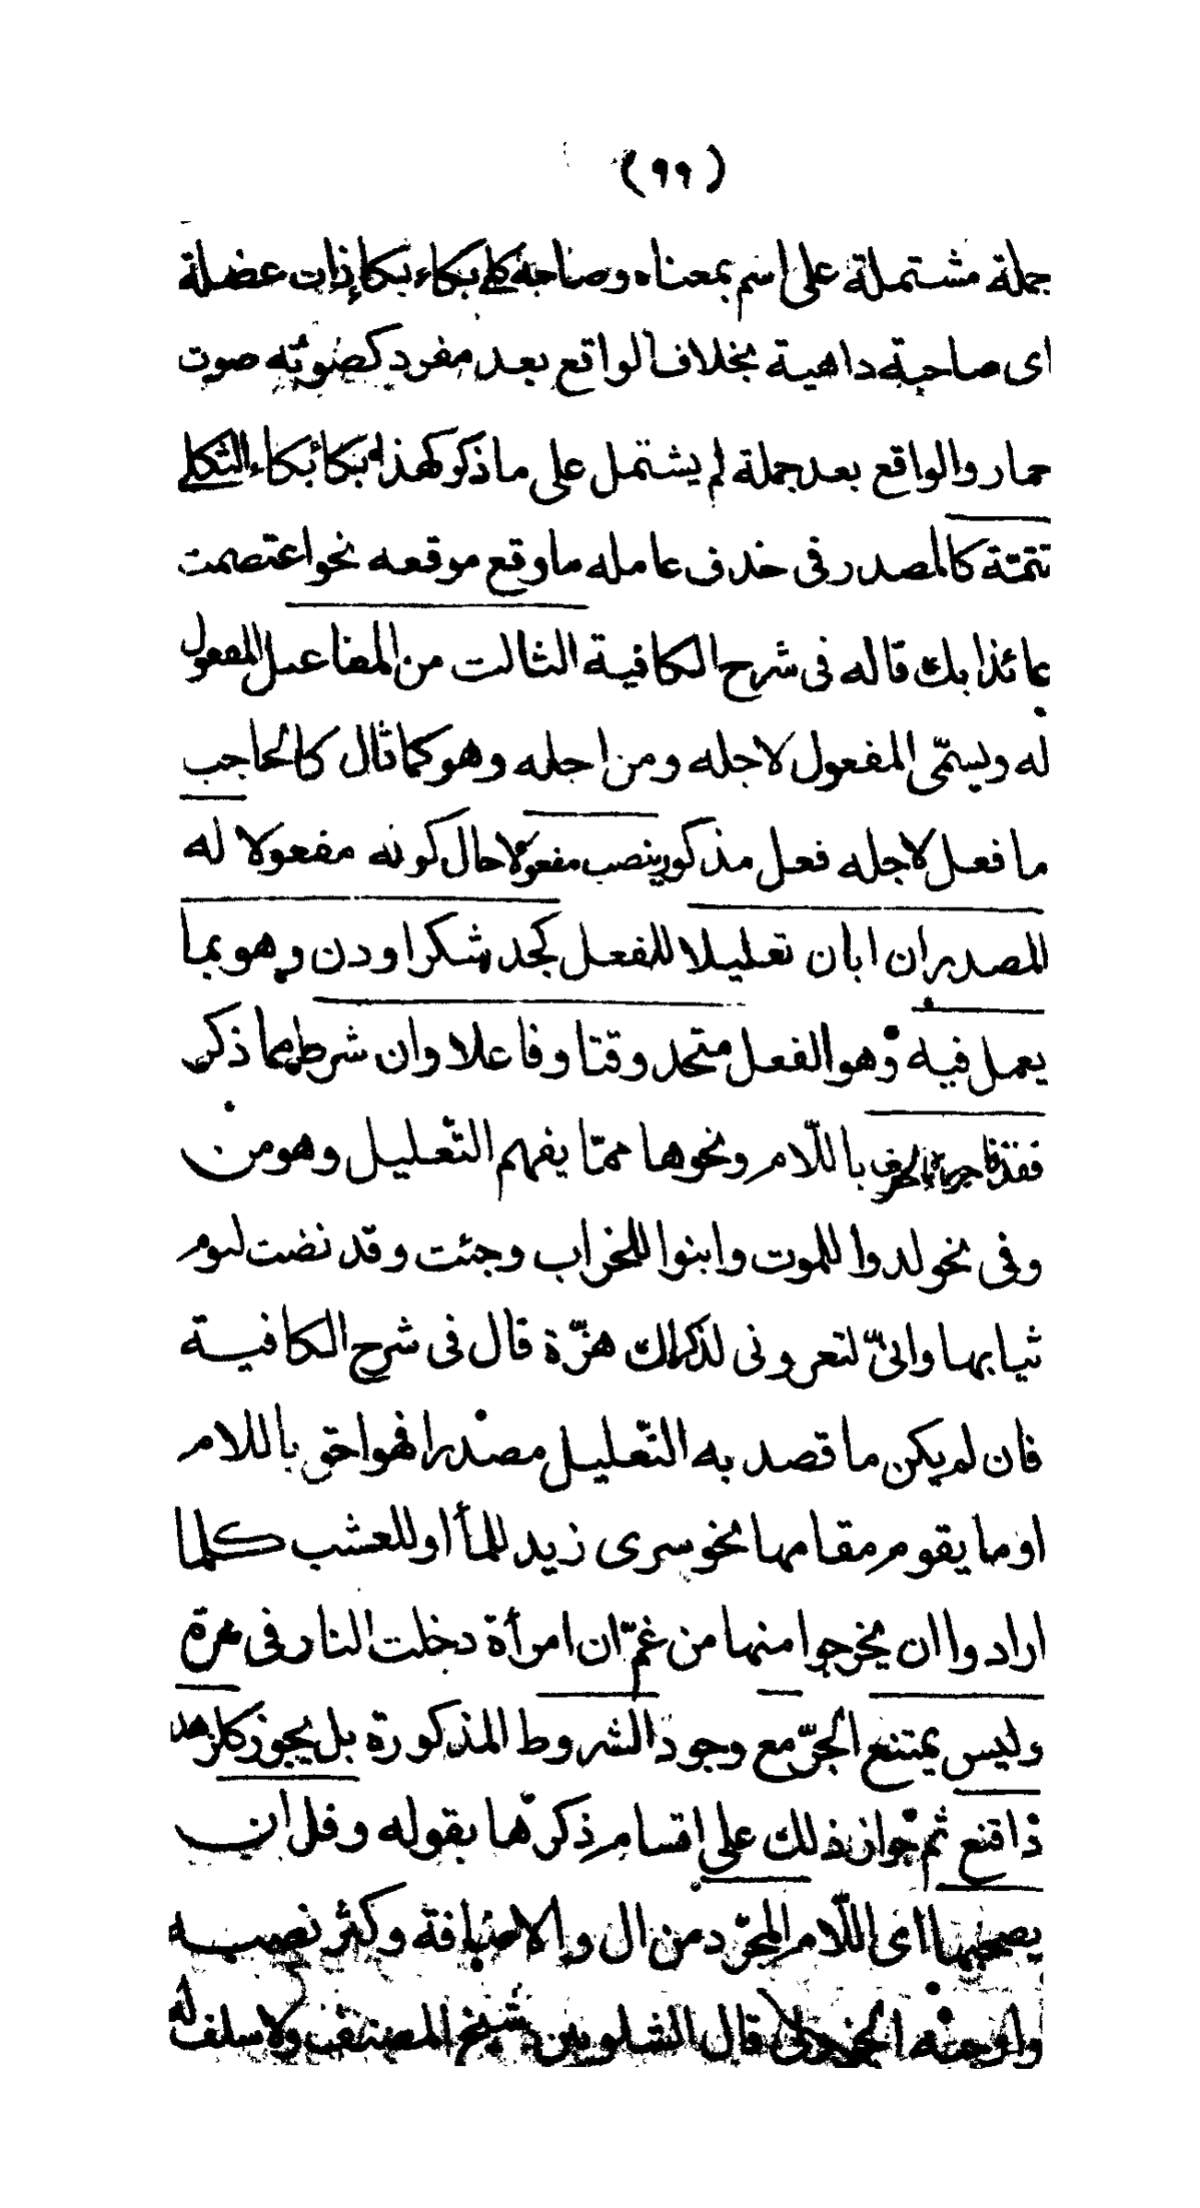 (٩٩)
جملة مشتملة على اسم بمعناه وصاحبه كلي بكاء بكا ذات عضلة
اى صاحبة داهية بخلاف الواقع بعد مفرد كصوته صوت
حمار والواقع بعد جملة لم يشتمل على ما ذكر كهذا بكا بكاء الثكلى
تتمّة كالمصدر فى حذف عامله ما وقع موقعه نحو اعتصمت
عائذا بك قاله فى شرح الكافية الثالث من المفاعيل المفعول
له ويسمّى المفعول لاجله ومن اجله وهو كما قال كالحاجب
ما فعل لاجله فعل مذكور ينصب مفعولا حال كونه مفعولا له
المصدر ان ابان تعليلا للفعل كجد شكرا ودن وهو بما
يعمل فيه وهو الفعل متحد وقتا وفاعلا وان شرط مما ذكر
فقد فاجرره بالحرف باللّام ونحوها ممّا يفهم التّعليل وهو من
وفى نحو لدوا للموت وابنوا للخراب وجئت وقد نضت لنوم
ثيابها وانىّ لتعرونى لذكراك هزّة قال فى شرح الكافية
فان لم يكن ما قصد به التّعليل مصدرا فهو احق باللام
او ما يقوم مقامها نحو سرى زيد للمأ او للعشب كلما
ارادوا ان يخرجوا منها من غمّ ان امرأة دخلت النار فى هرة
وليس يمتنع الجرّ مع وجود الشروط المذكورة بل يجوز كلزهد
ذا قنع ثم جواز ذلك على اقسام ذكرها بقوله وقل ان
يصحبها اى اللّام المجرّد من ال والاضافة وكثر نصبه
قال الشلوبين شيخ المصنف ولا سلف له